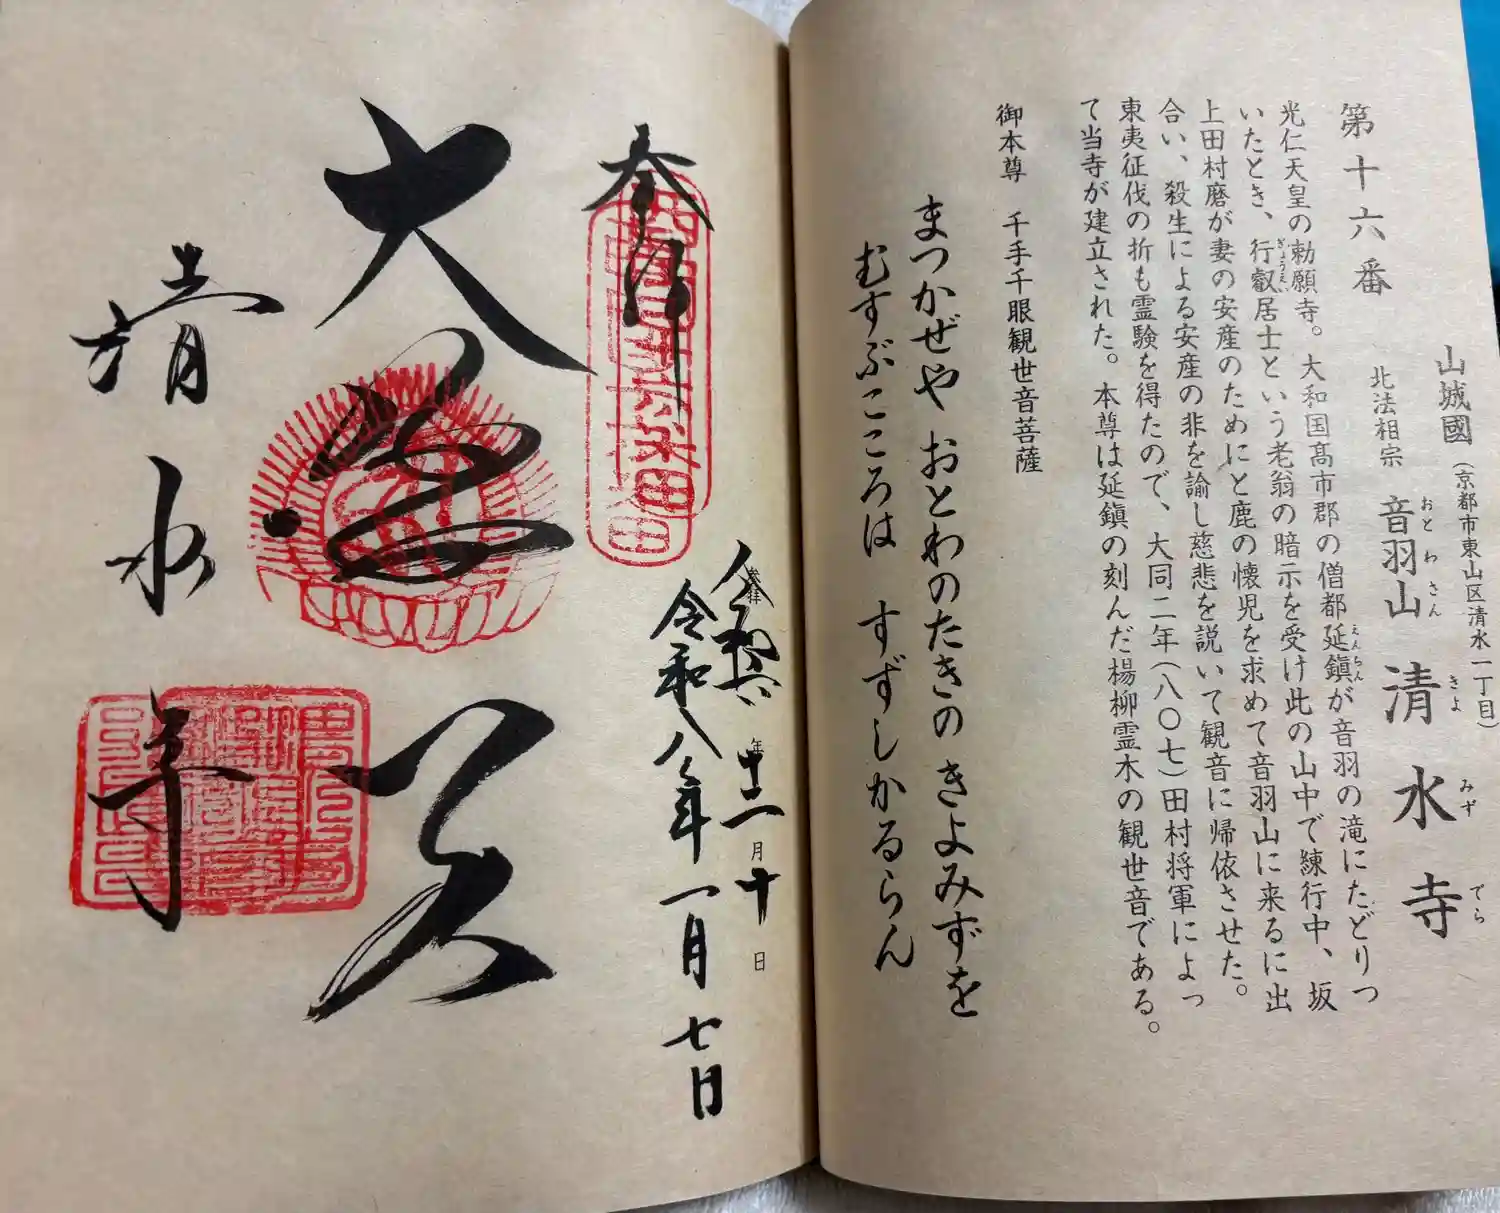 山城國(京都市東山区清水一丁目)
北法相宗 音羽山 清水寺
おとわさん きよみずでら
第十六番
光仁天皇の勅願寺。大和国髙市郡の僧都延鎭が音羽の滝にたどりつ
えんちん
いたとき、行叡居士という老翁の暗示を受け此の山中で練行中、坂
ぎょうえい
上田村磨が妻の安産のためにと鹿の懐児を求めて音羽山に来るに出
合い、殺生による安産の非を諭し慈悲を説いて観音に帰依させた。
東夷征伐の折も霊験を得たので、大同二年(八〇七)田村将軍によっ
て当寺が建立された。本尊は延鎭の刻んだ楊柳霊木の観世音である。
御本尊 千手千眼観世音菩薩
まつかぜや おとわのたきの きよみずを
むすぶこころは すずしかるらん
参拝 令和六年十二月十日
令和八年一月七日
奉拝
大悲閣
清水寺